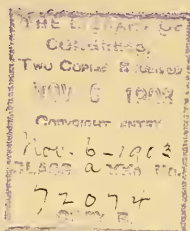 THE LIBRARY OF
CONGRESS,
TWO COPIES RECEIVED
NOV 6 1903
COPYRIGHT ENTRY
Nov. 6-1903
CLASS a XXc. No.
72074
COPY B.